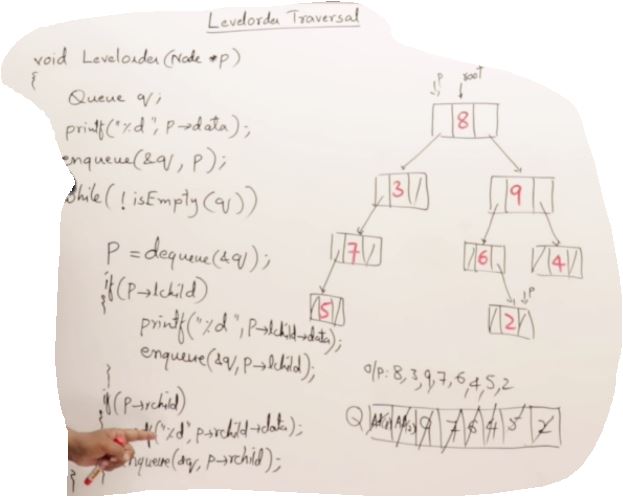 Levelorder Traversal
void Levelorder(Node *p)
{
Queue q;
printf("%d", P→data);
enqueue(&q, p);
while(!isEmpty(q))
P = dequeue(&q);
if(P→lchild)
{
printf("%d", P→lchild→data);
enqueue(&q, P→lchild);
}
if(P→rchild)
{
"%d", P→rchild→data);
enqueue(&q, P→rchild);
}
}
P root
8
3 9
7 6 4
P
5 2
o/p: 8,3,9,7,6,4,5,2
Q 9 7 6 4 5 2